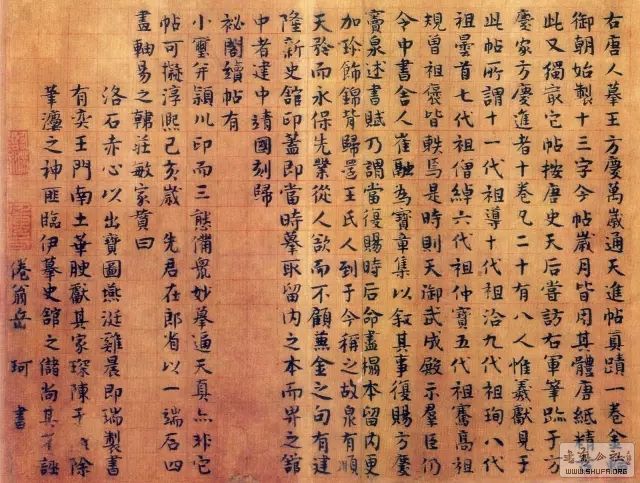 右唐人摹王方慶萬歲通天進帖真蹟一卷金
御朝始製十三字今帖歲月皆用其體唐紙精
此又獨最它帖按唐史天后嘗訪右軍筆跡于方
慶家方慶進者十卷凡二十有八人惟羲獻見于
此帖所謂十一代祖導十代祖洽九代祖珣八代
祖曇首七代祖僧綽六代祖仲寶五代祖騫高祖
規曾祖褒皆軼焉是時則天御武成殿示羣臣仍
令中書舍人崔融為寶章集以叙其事復賜方慶
竇臮述書賦乃謂當復賜時后命盡榻本留內更
加珍飾錦背歸還王氏人到于今稱之故泉有順
天矜而永保先業從人欲而不顧蕪金之句有建
隆新史館印蓋即當時摹取留內之本而畀之館
中者建中靖國刻歸
祕閣續帖有
小璽并潁川印而三態備眾妙摹通天真点非它
帖可擬淳熙己亥歲 先君在郎省以一端石四
畫軸易之韓莊敏家贊曰
洛石赤心以出寶圖燕涎雞晨即瑞製書
有奕王門南土華腴獻其家琛陳于除
筆灋之神匪臨伊摹史館之儲尚其誣
倦翁岳 珂 書
WWW.SHUFA.ORG